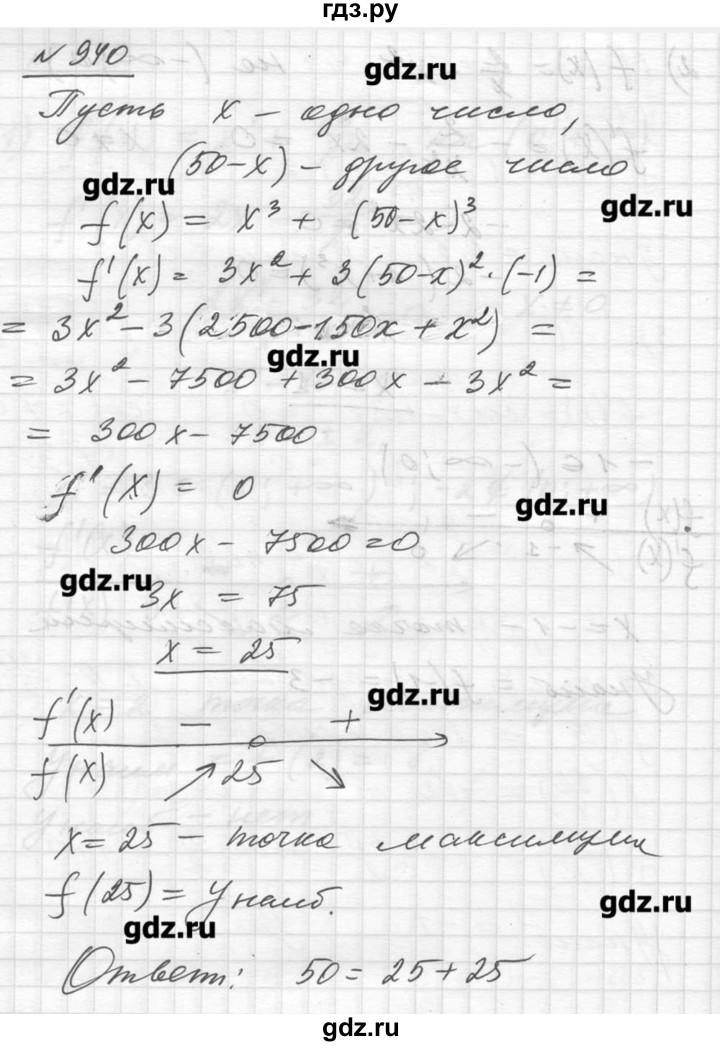 гдз.ру
N 940
gdz.ru
Пусть x – одно число,
(50-x) – другое число
gdz.ru
gdz.ru
f(x) = x³ + (50-x)³
f'(x) = 3x² + 3(50-x)²·(-1) =
= 3x² - 3(2500-150x + x²) =
gdz.ru
= 3x² - 7500 + 300x - 3x² =
= 300x - 7500
f'(x) = 0
gdz.ru
300x - 7500 = 0
gdz.ru
3x = 75
x = 25
gdz.ru
f'(x) – +
f(x) ↗ 25 ↘
x = 25 – точка максимума
f(25) = y наиб.
gdz.ru
gdz.ru
Ответ: 50 = 25 + 25
gdz.ru